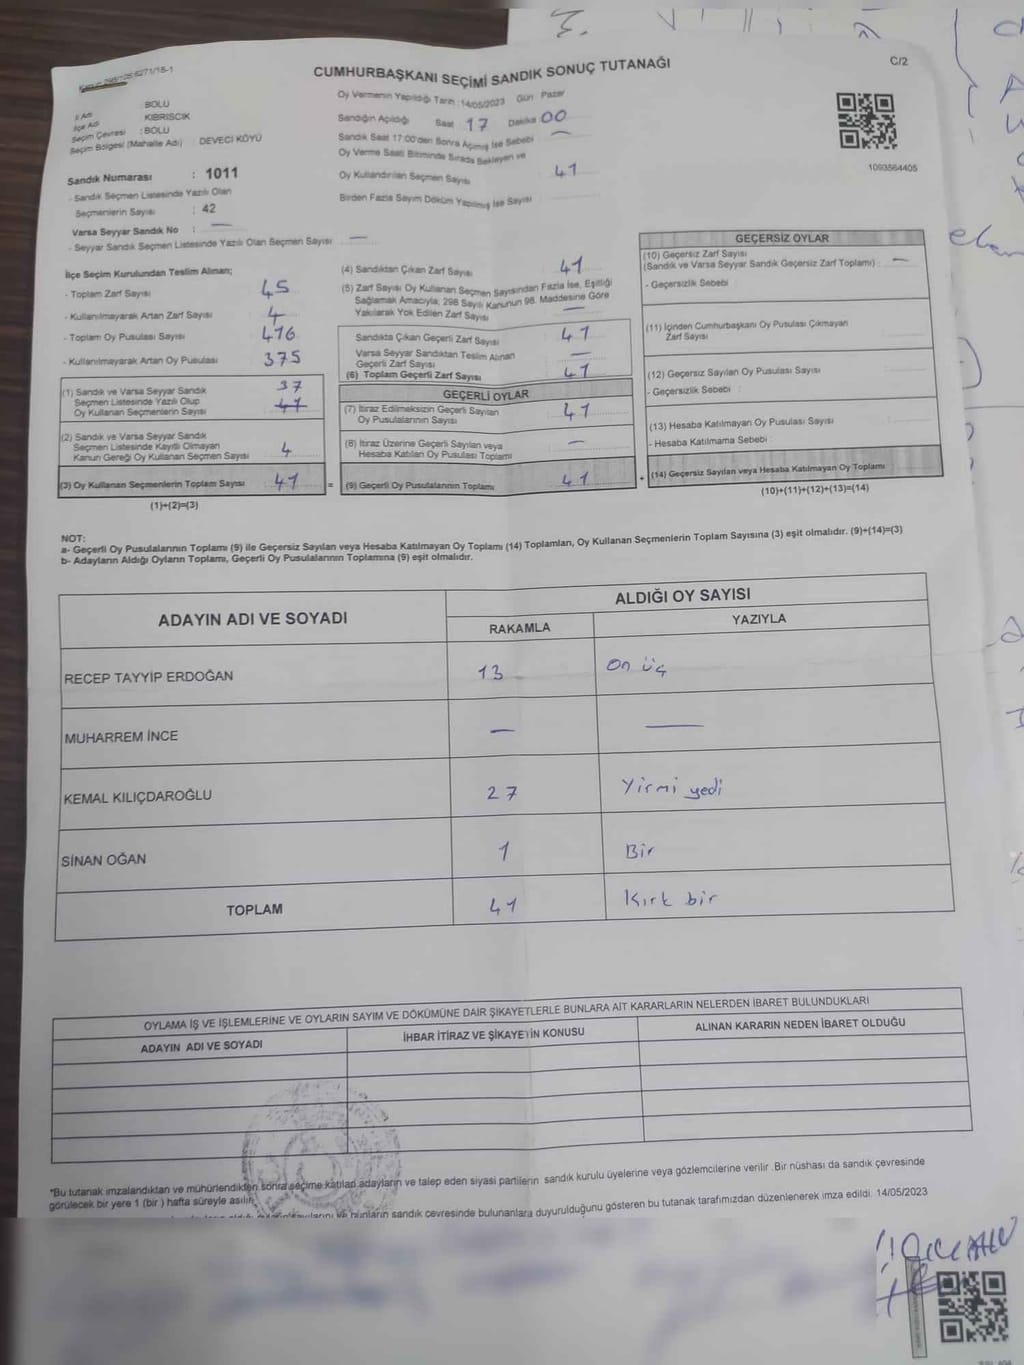 C/2
CUMHURBAŞKANI SEÇİMİ SANDIK SONUÇ TUTANAĞI
İl Adı : BOLU
İlçe Adı : KIBRISCIK
Seçim Çevresi : BOLU
Seçim Bölgesi (Mahalle Adı) DEVECİ KÖYÜ
Sandık Numarası : 1011
- Sandık Seçmen Listesinde Yazılı Olan
Seçmenlerin Sayısı : 42
Varsa Seyyar Sandık No : —
- Seyyar Sandık Seçmen Listesinde Yazılı Olan Seçmen Sayısı —
Oy Vermenin Yapıldığı Tarih : 14/05/2023 Gün Pazar
Sandığın Açıldığı Saat 17 Dakika 00
Sandık Saat 17:00'den Sonra Açımış İse Sebebi —
Oy Verme Saati Bitiminde Sırada Bekleyen ve
Oy Kullandırılan Seçmen Sayısı 41
Birden Fazla Sayım Döküm Yapılmış İse Sayısı
1093564405
İlçe Seçim Kurulundan Teslim Alınan;
- Toplam Zarf Sayısı 45
- Kullanılmayarak Artan Zarf Sayısı 4
- Toplam Oy Pusulası Sayısı 416
- Kullanılmayarak Artan Oy Pusulası 375
(1) Sandık ve Varsa Seyyar Sandık 37
Seçmen Listesinde Yazılı Olup
Oy Kullanan Seçmenlerin Sayısı 41
(2) Sandık ve Varsa Seyyar Sandık
Seçmen Listesinde Kayıtlı Olmayan
Kanun Gereği Oy Kullanan Seçmen Sayısı 4
(3) Oy Kullanan Seçmenlerin Toplam Sayısı 41 =
(1)+(2)=(3)
(4) Sandıktan Çıkan Zarf Sayısı 41
(5) Zarf Sayısı Oy Kullanan Seçmen Sayısından Fazla İse, Eşitliği
Sağlamak Amacıyla, 298 Sayılı Kanunun 98. Maddesine Göre
Yakılarak Yok Edilen Zarf Sayısı —
Sandıkta Çıkan Geçerli Zarf Sayısı 41
Varsa Seyyar Sandıktan Teslim Alınan
Geçerli Zarf Sayısı —
(6) Toplam Geçerli Zarf Sayısı 41
GEÇERLİ OYLAR
(7) İtiraz Edilmeksizin Geçerli Sayılan
Oy Pusulalarının Sayısı 41
(8) İtiraz Üzerine Geçerli Sayılan veya
Hesaba Katılan Oy Pusulası Toplamı —
(9) Geçerli Oy Pusulalarının Toplamı 41 +
GEÇERSİZ OYLAR
(10) Geçersiz Zarf Sayısı
(Sandık ve Varsa Seyyar Sandık Geçersiz Zarf Toplamı) : —
- Geçersizlik Sebebi :
(11) İçinden Cumhurbaşkanı Oy Pusulası Çıkmayan
Zarf Sayısı
(12) Geçersiz Sayılan Oy Pusulası Sayısı
- Geçersizlik Sebebi :
(13) Hesaba Katılmayan Oy Pusulası Sayısı
- Hesaba Katılmama Sebebi :
(14) Geçersiz Sayılan veya Hesaba Katılmayan Oy Toplamı
(10)+(11)+(12)+(13)=(14)
NOT:
a- Geçerli Oy Pusulalarının Toplamı (9) ile Geçersiz Sayılan veya Hesaba Katılmayan Oy Toplamı (14) Toplamları, Oy Kullanan Seçmenlerin Toplam Sayısına (3) eşit olmalıdır. (9)+(14)=(3)
b- Adayların Aldığı Oyların Toplamı, Geçerli Oy Pusulalarının Toplamına (9) eşit olmalıdır.
ADAYIN ADI VE SOYADI
ALDIĞI OY SAYISI
RAKAMLA YAZIYLA
RECEP TAYYİP ERDOĞAN 13 On üç
MUHARREM İNCE — —
KEMAL KILIÇDAROĞLU 27 Yirmi yedi
SİNAN OĞAN 1 Bir
TOPLAM 41 Kırk bir
OYLAMA İŞ VE İŞLEMLERİNE VE OYLARIN SAYIM VE DÖKÜMÜNE DAİR ŞİKAYETLERLE BUNLARA AİT KARARLARIN NELERDEN İBARET BULUNDUKLARI
ADAYIN ADI VE SOYADI İHBAR İTİRAZ VE ŞİKAYETİN KONUSU ALINAN KARARIN NEDEN İBARET OLDUĞU
*Bu tutanak imzalandıktan ve mühürlendikten sonra seçime katılan adayların ve talep eden siyasi partilerin sandık kurulu üyelerine veya gözlemcilerine verilir .Bir nüshası da sandık çevresinde
görülecek bir yere 1 (bir ) hafta süreyle asılır.
ve bunların sandık çevresinde bulunanlara duyurulduğunu gösteren bu tutanak tarafımızdan düzenlenerek imza edildi. 14/05/2023